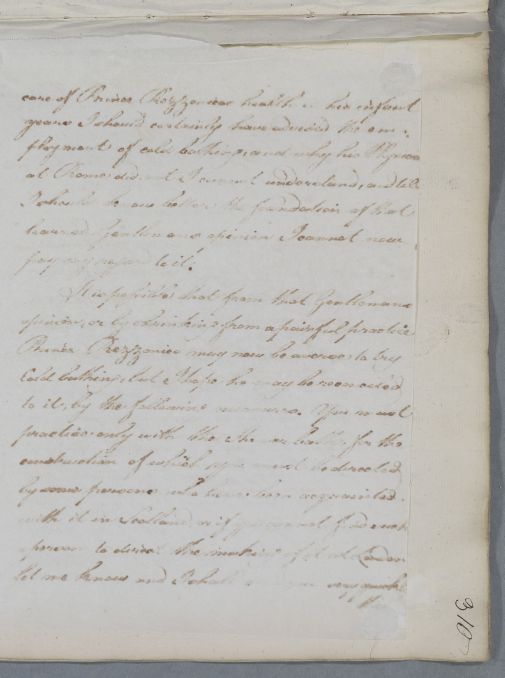 care of Prince Rezzonico's health in his infant
years I should certainly have advised the em-
ployment of cold bathing, and why his Physician
at Rome did not I cannot understand, and till
I should know better the foundation of that
learned Gentleman's opinion I cannot now
pay any regard to it.
It is possible that from that Gentleman's
opinion, or by shrinking from a painful practice
Prince Rezzonico may now be averse to try
Cold bathing, but I hope he may be reconciled
to it, by the following measures. You must
practice only with the Shower bath, for the
construction of which you must be directed
by some persons who have been acquainted
with it in Scotland, or if you cannot find such
a person to direct the making of it at London
let me know and I shall very quickly
310